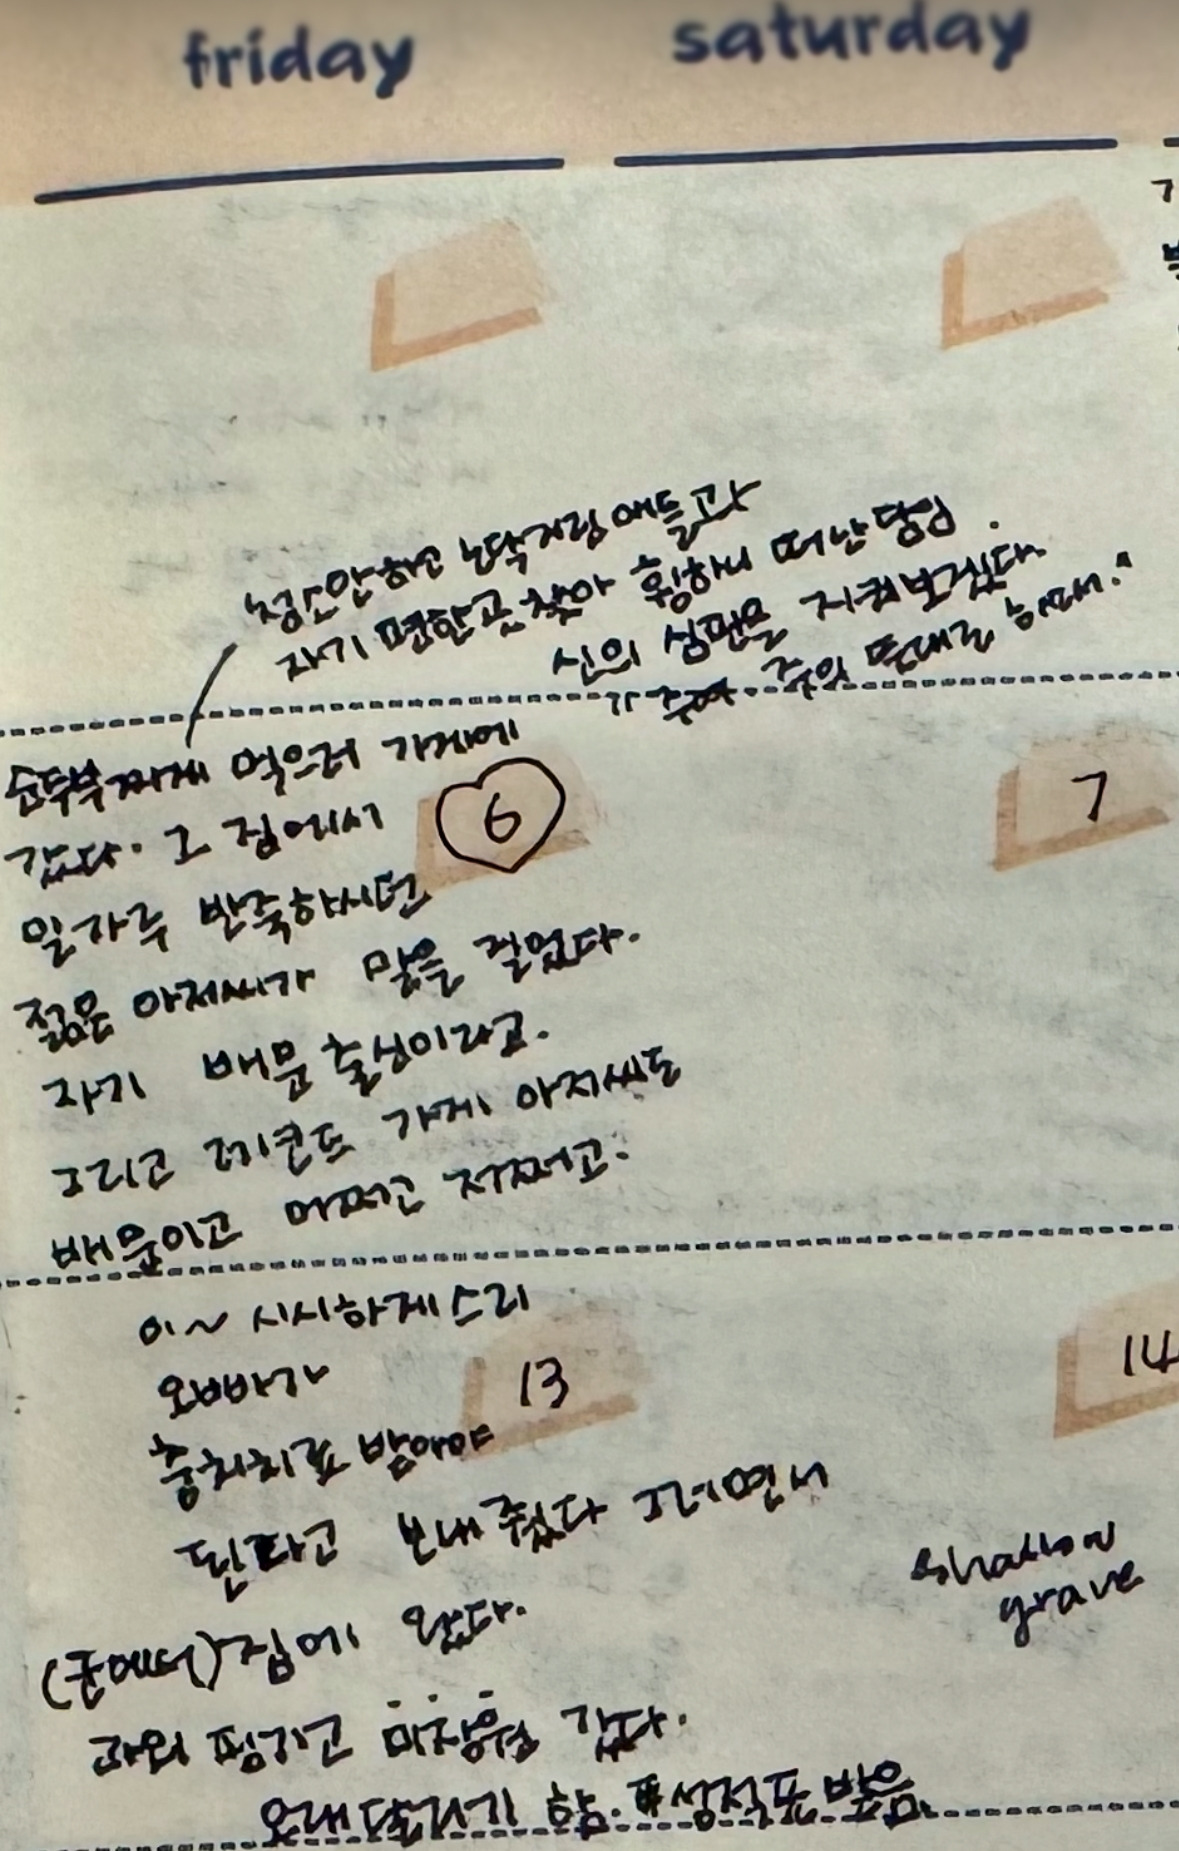 friday
saturday
청소 안하고 논닥거린 애들과
자기 편한 곳 찾아 휭하니 떠난 담임.
신의 심판을 지켜보겠다
주의 뜻대로 하소서..
순두부찌개 먹으러 가게에
갔다. 그 집에서
6
7
밀가루 반죽하시던
젊은 아저씨가 말을 걸었다.
자기 배문 출신이라고.
그리고 레코드 가게 아저씨도
배문이고 어쩌고 저쩌고.
이~ 시시하게스리
오빠가
13
14
충치치료 받아야
된다고 보내줬다 그러면서
(군에서) 집에 왔다.
shallow
grave
과외 땡기고 미장원 갔다.
오래달리기 함. 성적표 받음